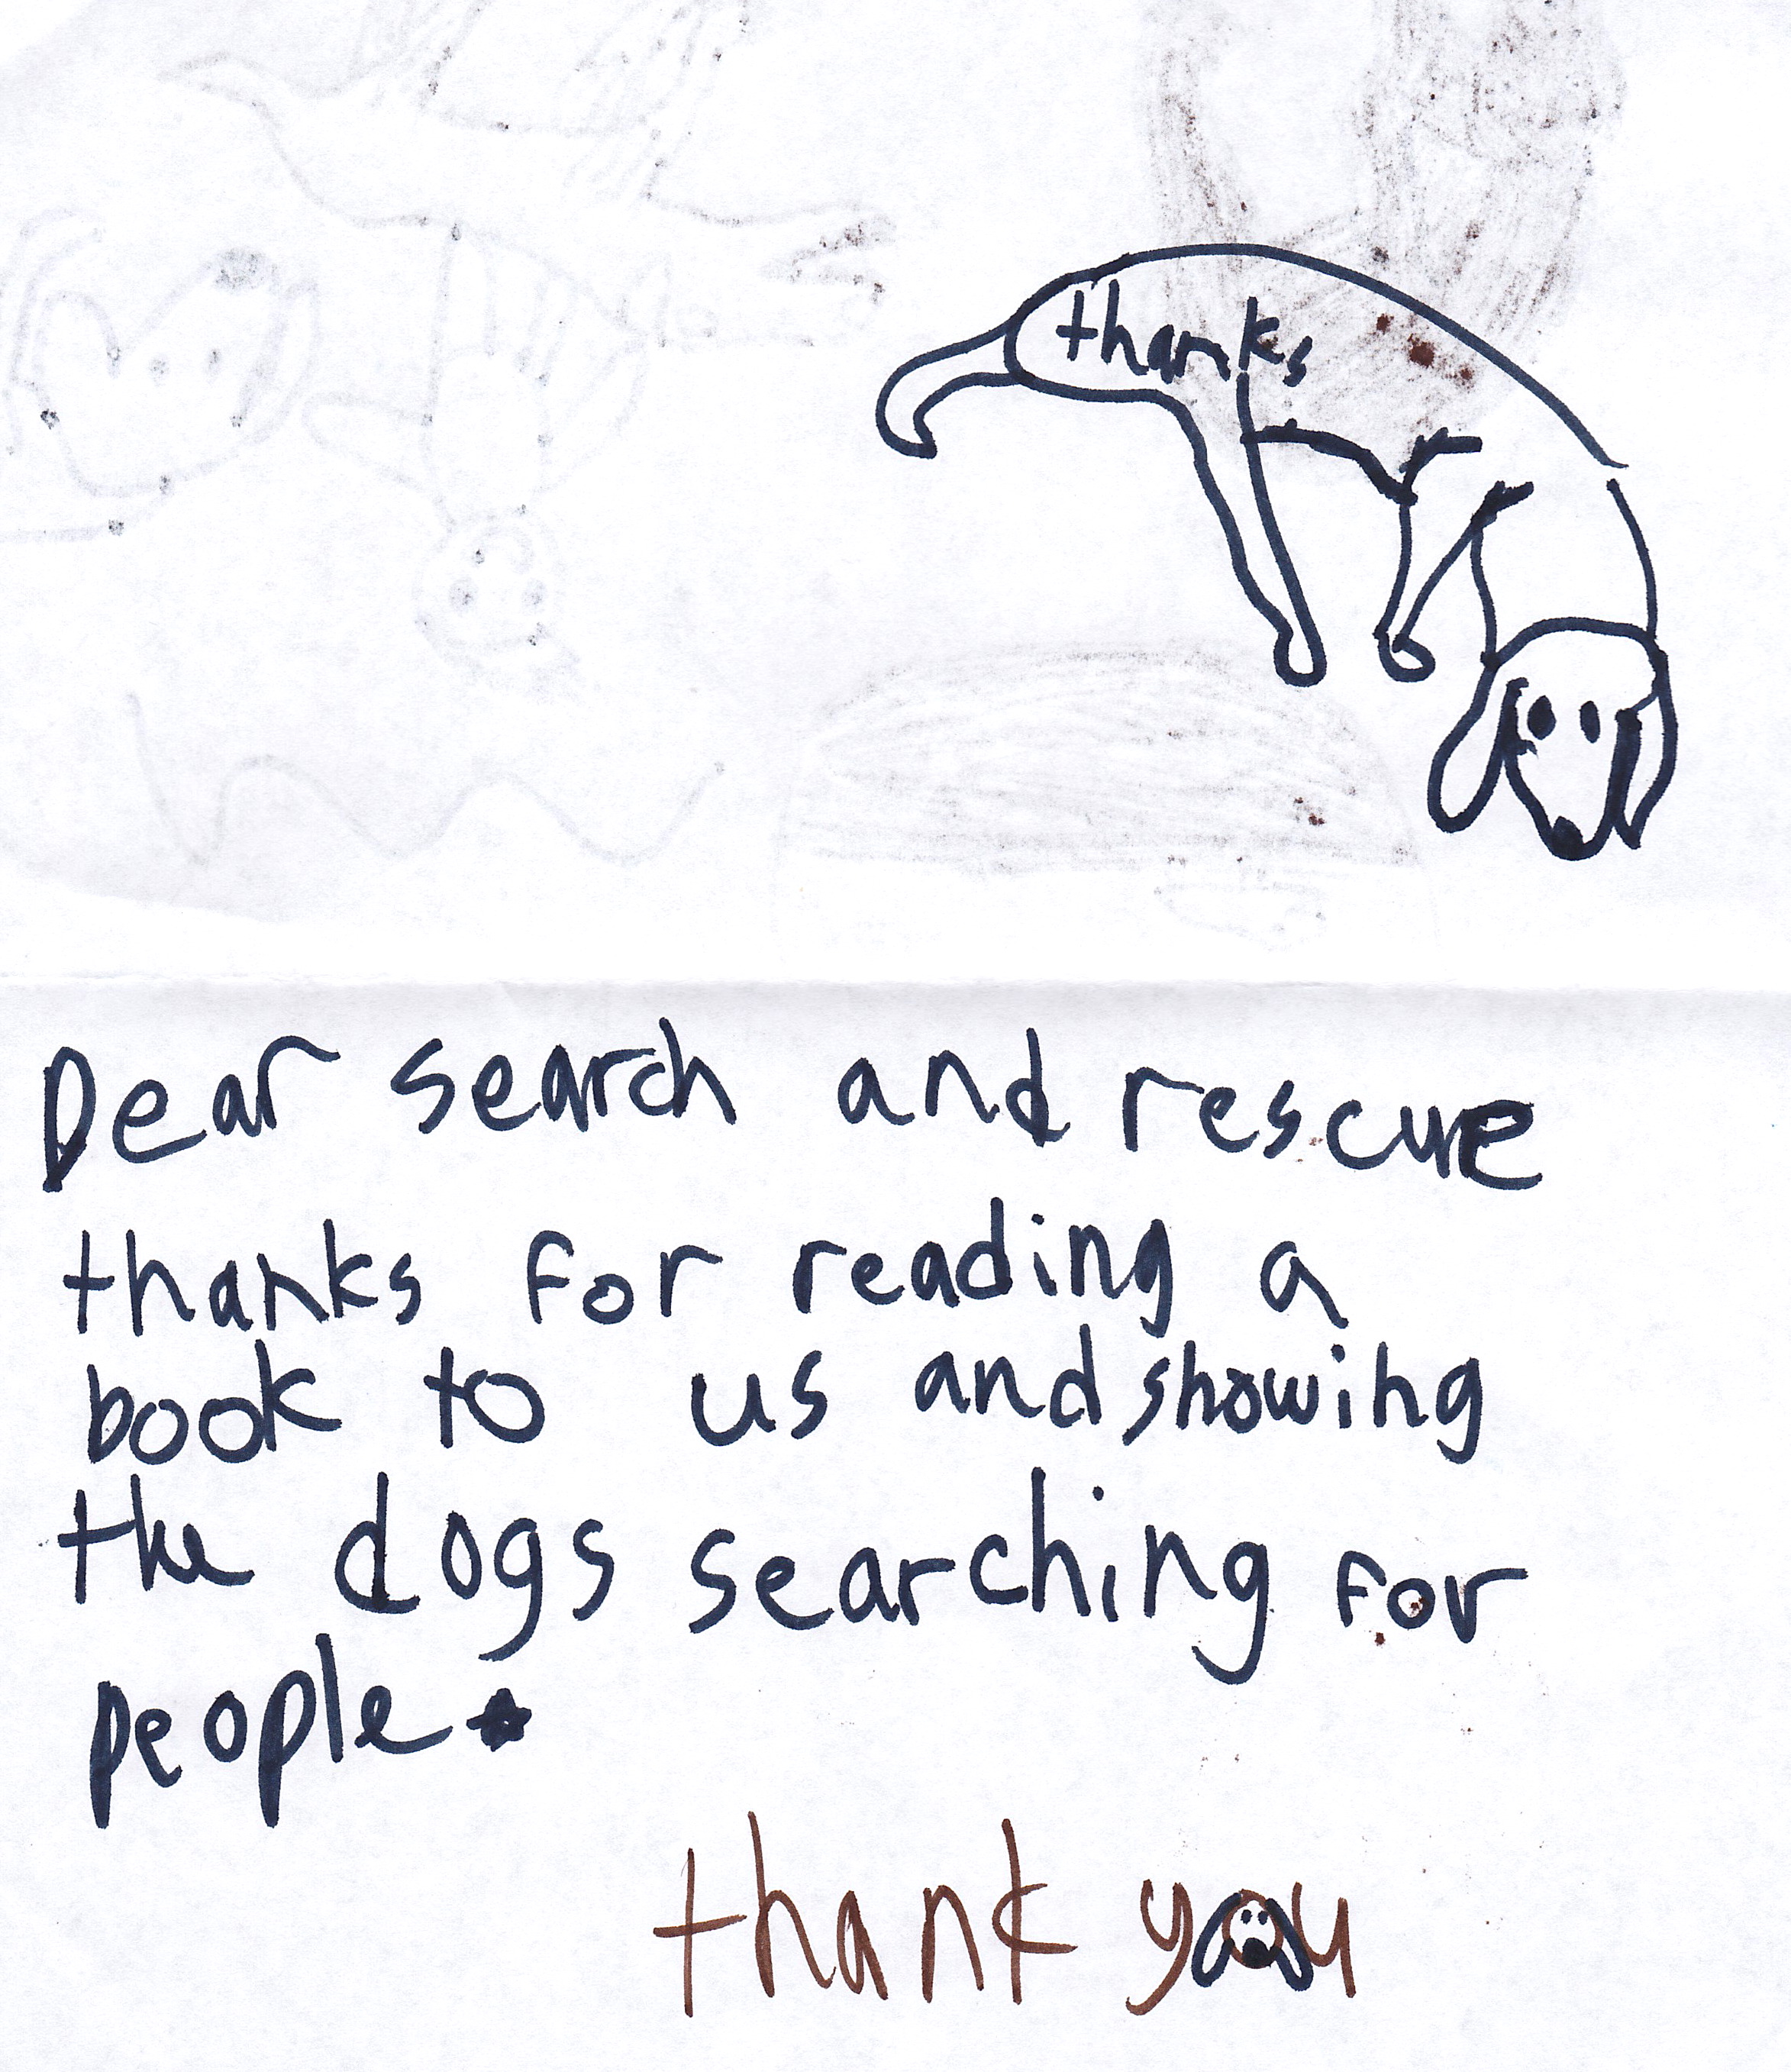 thanks
Dear search and rescue
thanks for reading a
book to us and showing
the dogs searching for
people.
thank you